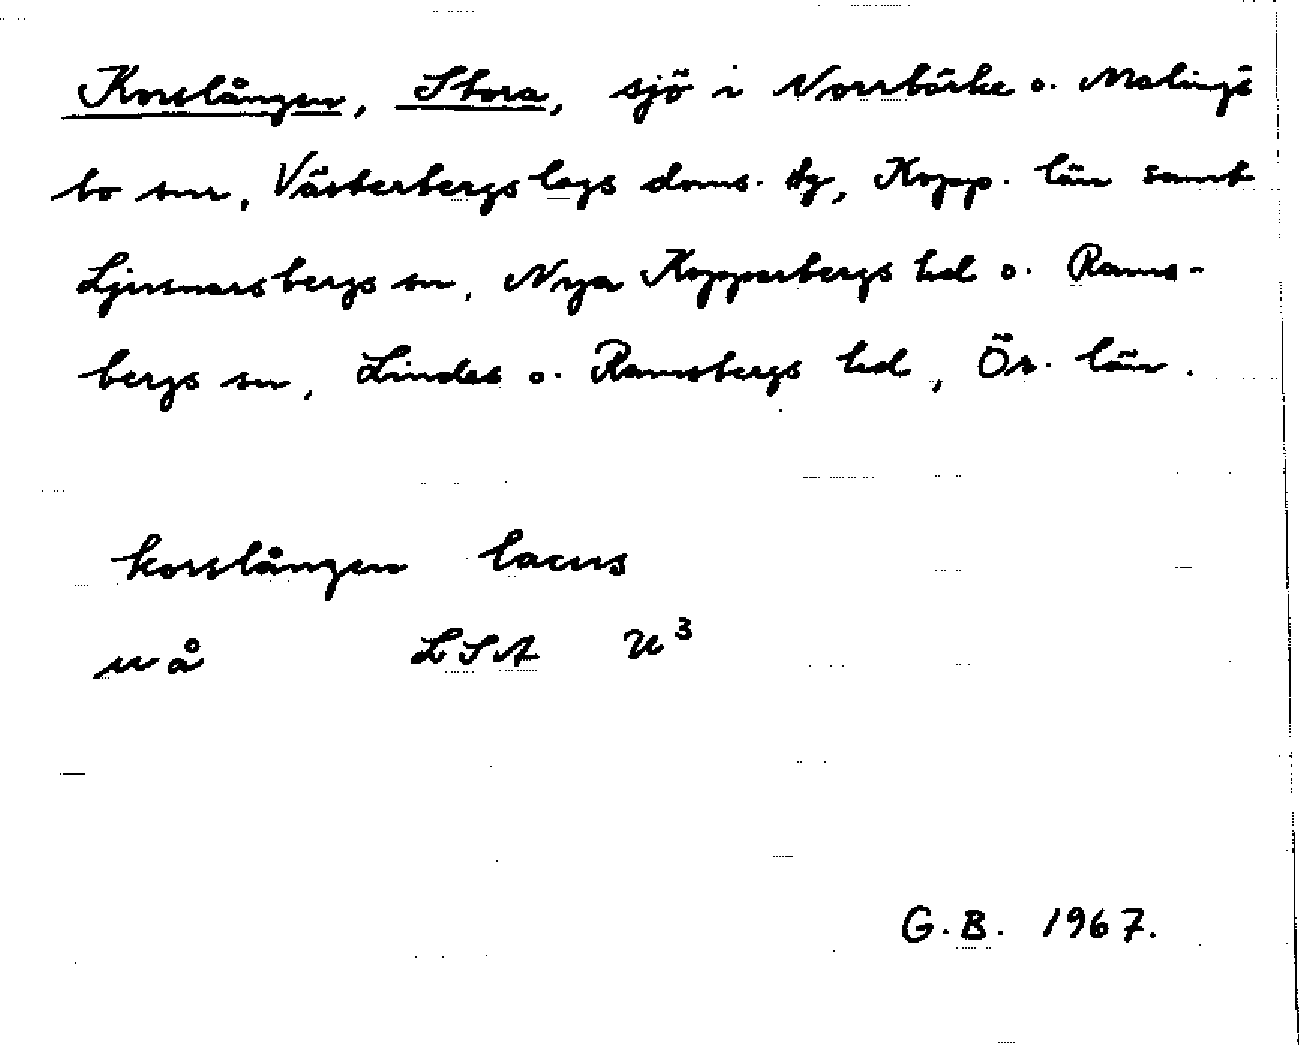 Korslången, Stora, sjö i Norrbärke o. Malings
bo snr, Västerbergslags doms. tg, Kopp. län samt
Ljusnarsbergs sn, Nya Kopparbergs hd o. Rams-
bergs sn, Lindes o. Ramsbergs hd, Ör. län.
korslången lacus
nå LSA U³
G.B. 1967.